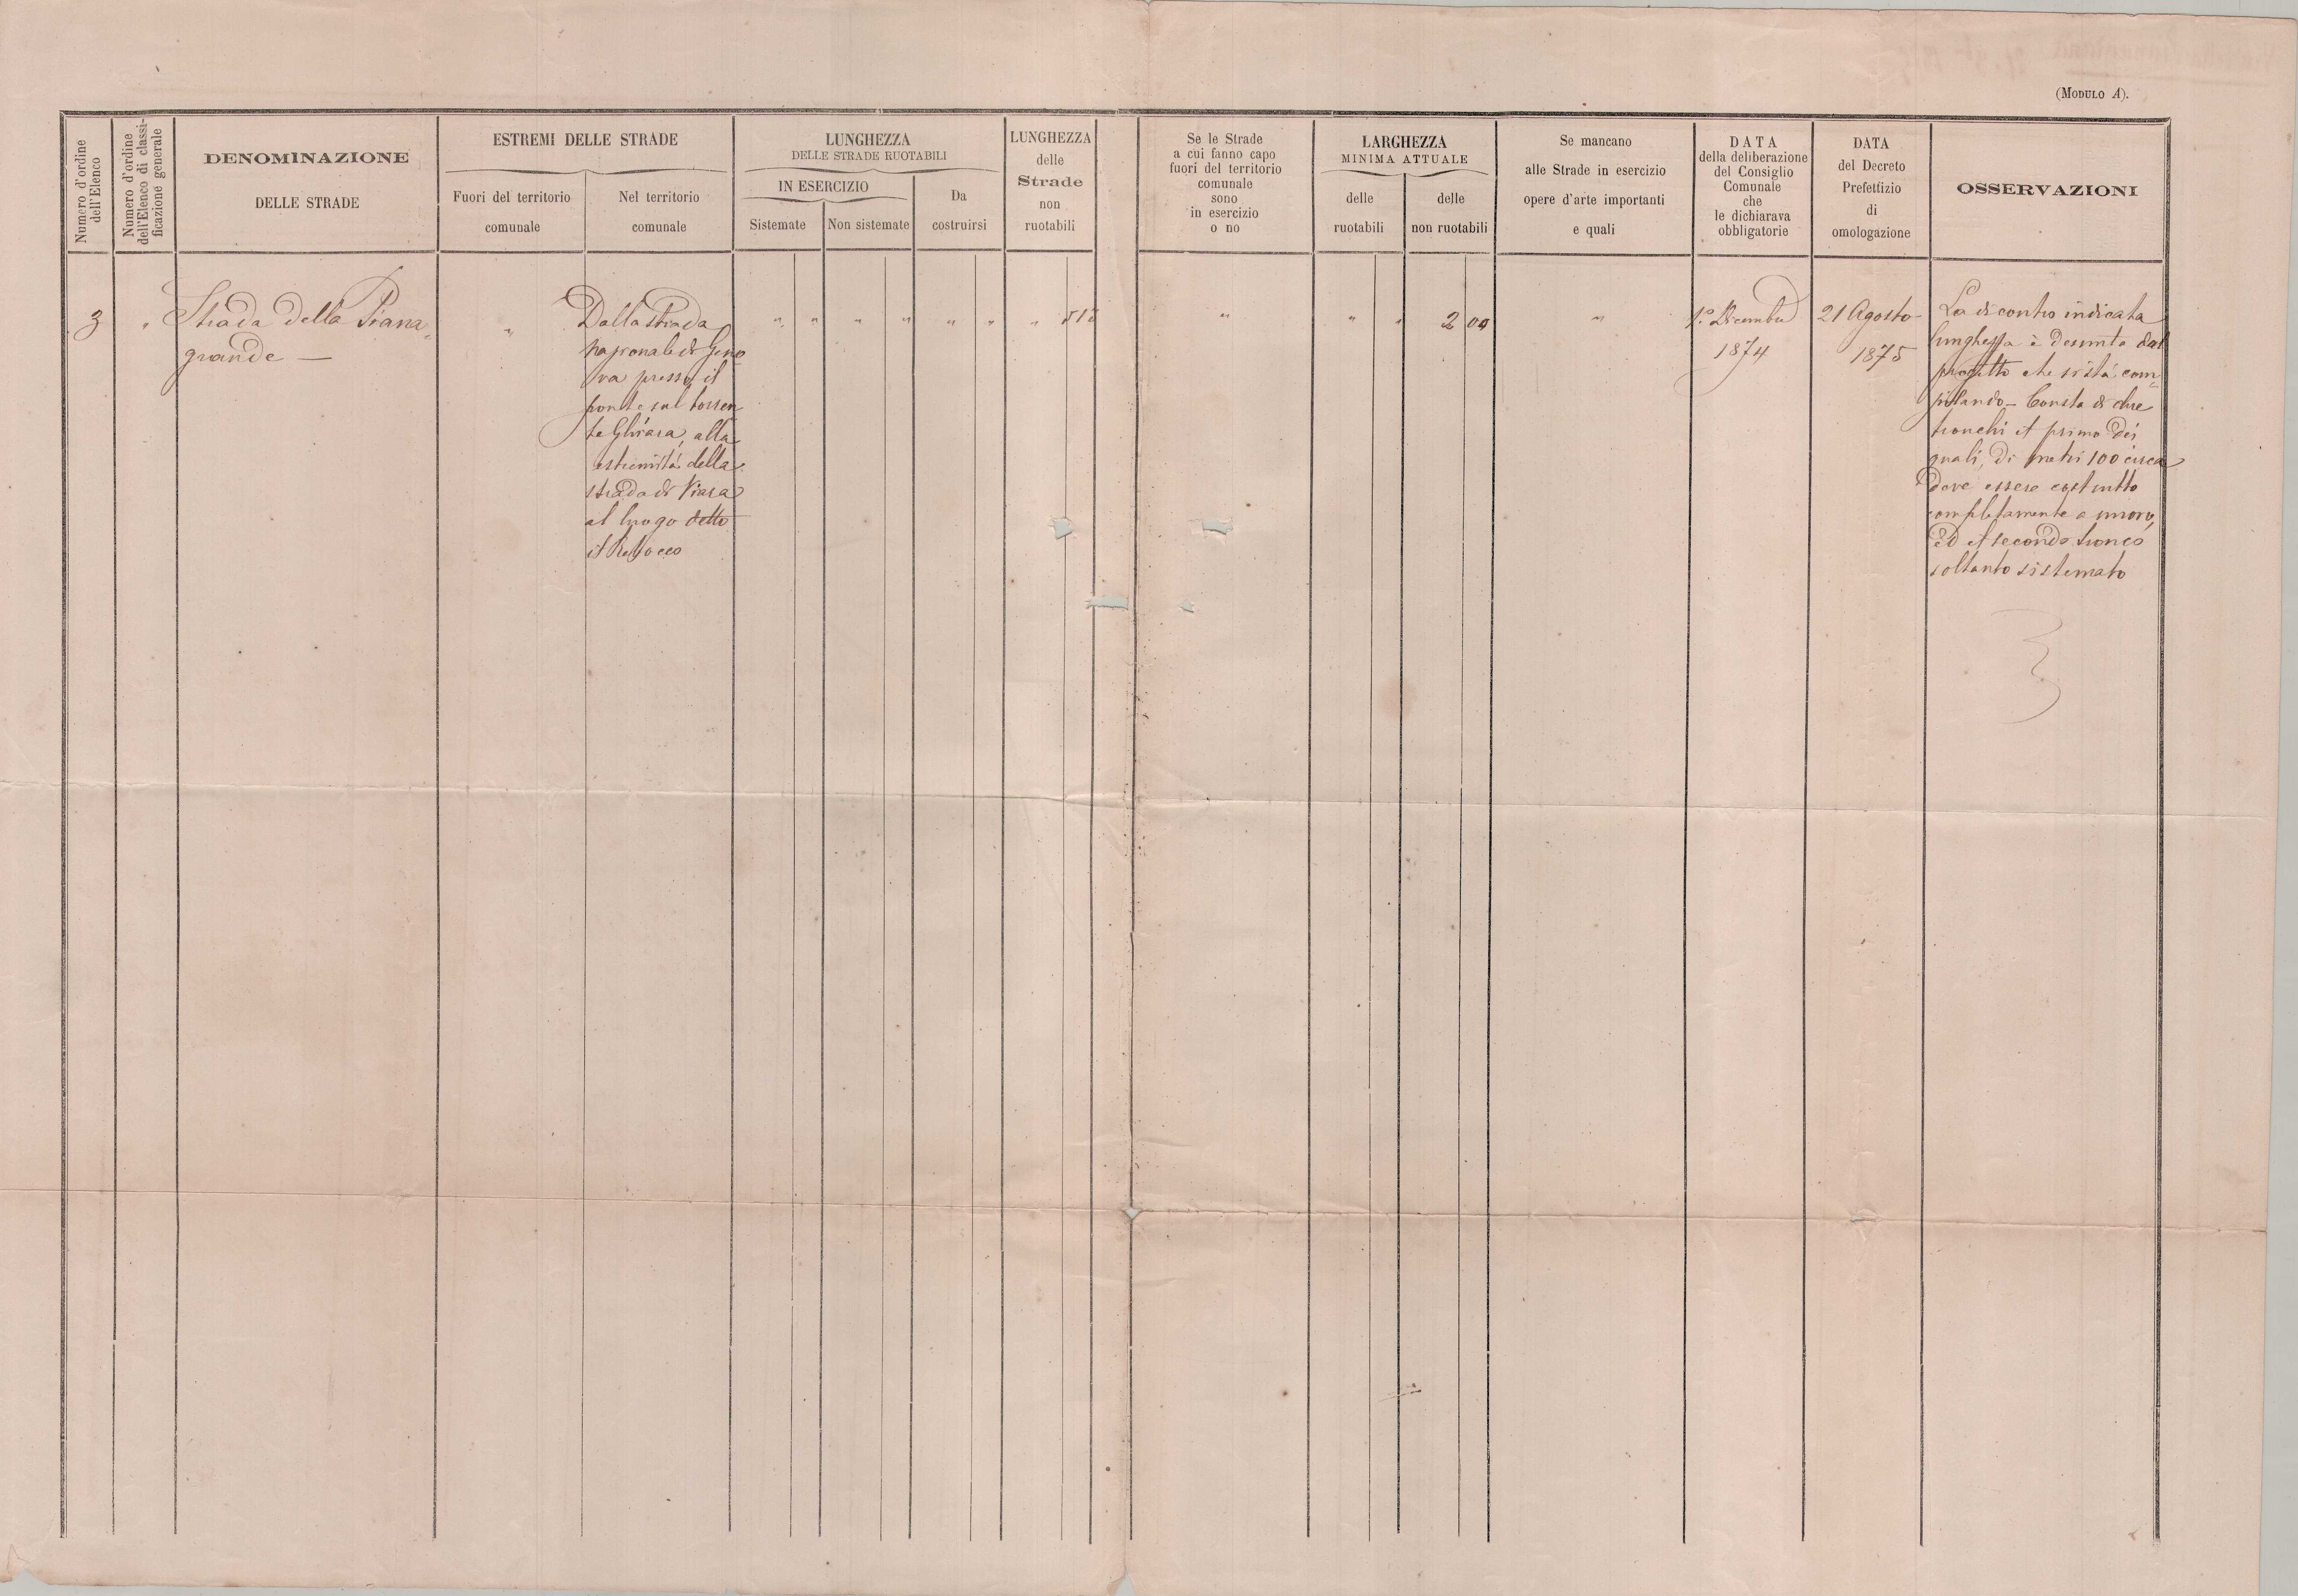 (Modulo A).
Numero d'ordine
dell'Elenco
Numero d'ordine
dell'Elenco di classi-
ficazione generale
DENOMINAZIONE
DELLE STRADE
ESTREMI DELLE STRADE
Fuori del territorio
comunale
Nel territorio
comunale
LUNGHEZZA
DELLE STRADE RUOTABILI
IN ESERCIZIO
Sistemate
Non sistemate
Da
costruirsi
LUNGHEZZA
delle
Strade
non
ruotabili
Se le Strade
a cui fanno capo
fuori del territorio
comunale
sono
in esercizio
o no
LARGHEZZA
MINIMA ATTUALE
delle
ruotabili
delle
non ruotabili
Se mancano
alle Strade in esercizio
opere d'arte importanti
e quali
DATA
della deliberazione
del Consiglio
Comunale
che
le dichiarava
obbligatorie
DATA
del Decreto
Prefettizio
di
omologazione
OSSERVAZIONI
3
"
Strada della Piana
grande —
"
Dalla Strada
nazionale di Geno
va presso il
ponte sul torren
te Ghiara, alla
estremità della
strada di Viara
al luogo detto
il
" " " " " " "
"
" "
2 00
"
1º Dicembre
1874
21 Agosto
1875
La di contro indicata
lunghezza è desunta dal
progetto che si stà com
pilando - Consta di due
tronchi il primo dei
quali, di metri 100 circa
deve essere costrutto
completamente a nuovo,
ed il secondo tronco
soltanto sistemato